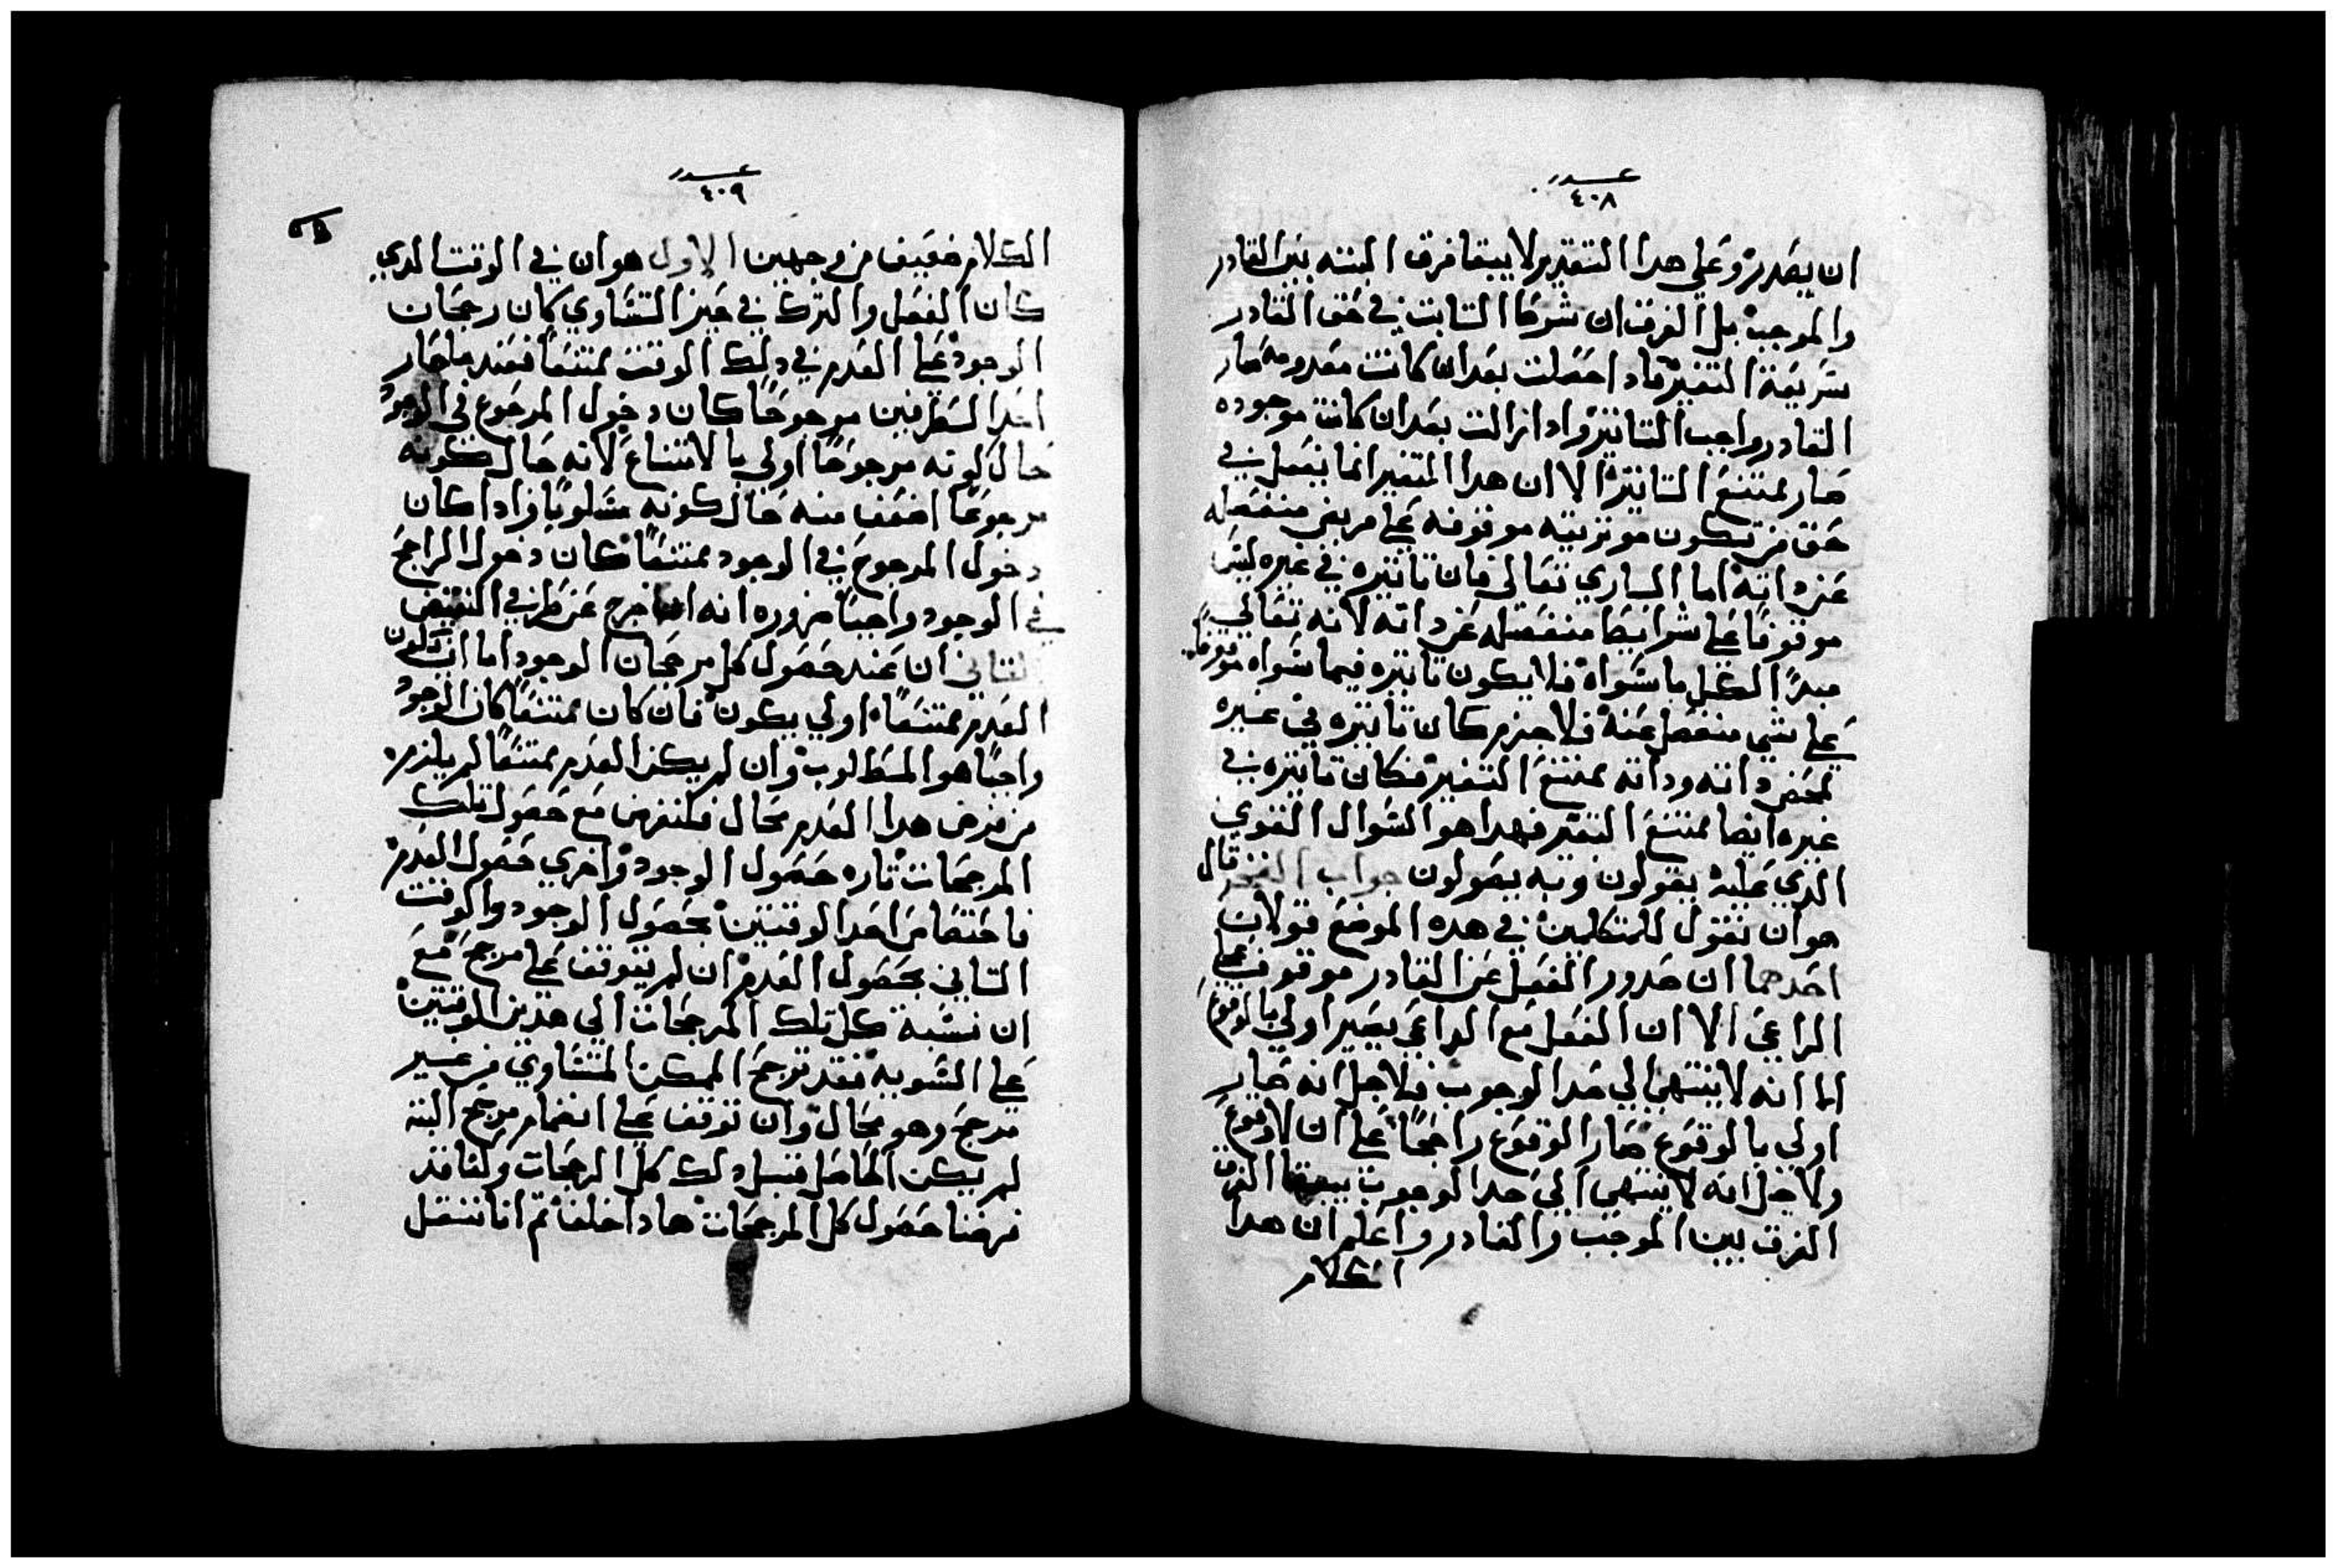 عدد
٤٠٨
ان يصدر وعلي هدا التقدير لا يبقا فرق البته بين القادر
والموجب بل الفرق ان شرط التابت في حق القادر
سريعة التغير فادا حصلت بعد ان كانت معدومه صار
القادر واجب التاتير وادا زالت بعد ان كانت موجوده
صار ممتنع التاتير الا ان هدا المتغير انما يفعل في
حق من تكون موتريته موقوفه علي منفصله
عن داته اما الباري تعالي فان تاتيره في غيره ليس
موقوفا علي شرايط منفصله عن داته لانه تعالي
مبدا لكل ما سواه فلا يكون تاتيره فيما سواه موقوفا
علي شي منفصل عنه فلا جرم كان تاتيره في غيره
لمحض داته وداته ممتنع التغير فكان تاتيره في
غيره ايضا ممتنع التغير فهدا هو السوال القوي
الدي عليه يعولون وبه يصولون جواب الفخر قال
هو ان نقول للمتكلمين في هده الموضع قولان
احدهما ان صدور الفعل عن القادر موقوف علي
الداعي الا ان الفعل مع الداعي يصير اولي بالوقوع
الا انه لا ينتهي الي حد الوجوب فلاجل انه صار
اولي بالوقوع صار الوقوع راجحا علي ان لا وقوع
ولاجل انه لا ينتهي الي حد الوجوب يبقا الفرق
الفرق بين الموجب والقادر واعلم ان هدا
الكلام
عدد
٤٠٩
الكلام ضعيف من وجهين الاول هو ان في الوقت الدي
كان الفعل والترك في حيز التساوي كان رجحان
الوجود علي العدم في دلك الوقت ممتنعا فعند ما صار
احد الطرفين مرجوحا كان دخول المرجوع في الوجود
حال كونه مرجوحا اولي بالامتناع لانه حال كونه
مرجوحا اضعف منه حال كونه مساويا وادا كان
دخول المرجوح في الوجود ممتنعا كان دخول الراجح
في الوجود واجبا ضروره انه خرج عن طرفي النقيض
التاني ان عند حصول كل مرجحان الوجود اما ان يكون
العدم ممتنعا اولي يكون فان كان ممتنعا كان الوجود
واجبا هو المطلوب وان لم يكن العدم ممتنعا لم يلزم
من فرض هدا العدم محال فلنفرض مع حصول تلك
المرجحات تاره حصول الوجود واخري حصول العدم
فاختصاص احد الوقتين بحصول الوجود والوقت
التاني بحصول العدم ان لم يتوقف علي مرجح مع
ان نسبة كل تلك المرجحات الي هدين الوقتين
علي السويه فقد ترجح الممكن المتساوي من غير
مرجح وهو محال وان توقف علي انضمام مرجح البته
لم يكن الحاصل قبل دلك كل الرجحات وكنا قد
فرضنا حصول كل المرجحات هادا خلف تم انا ننتقل